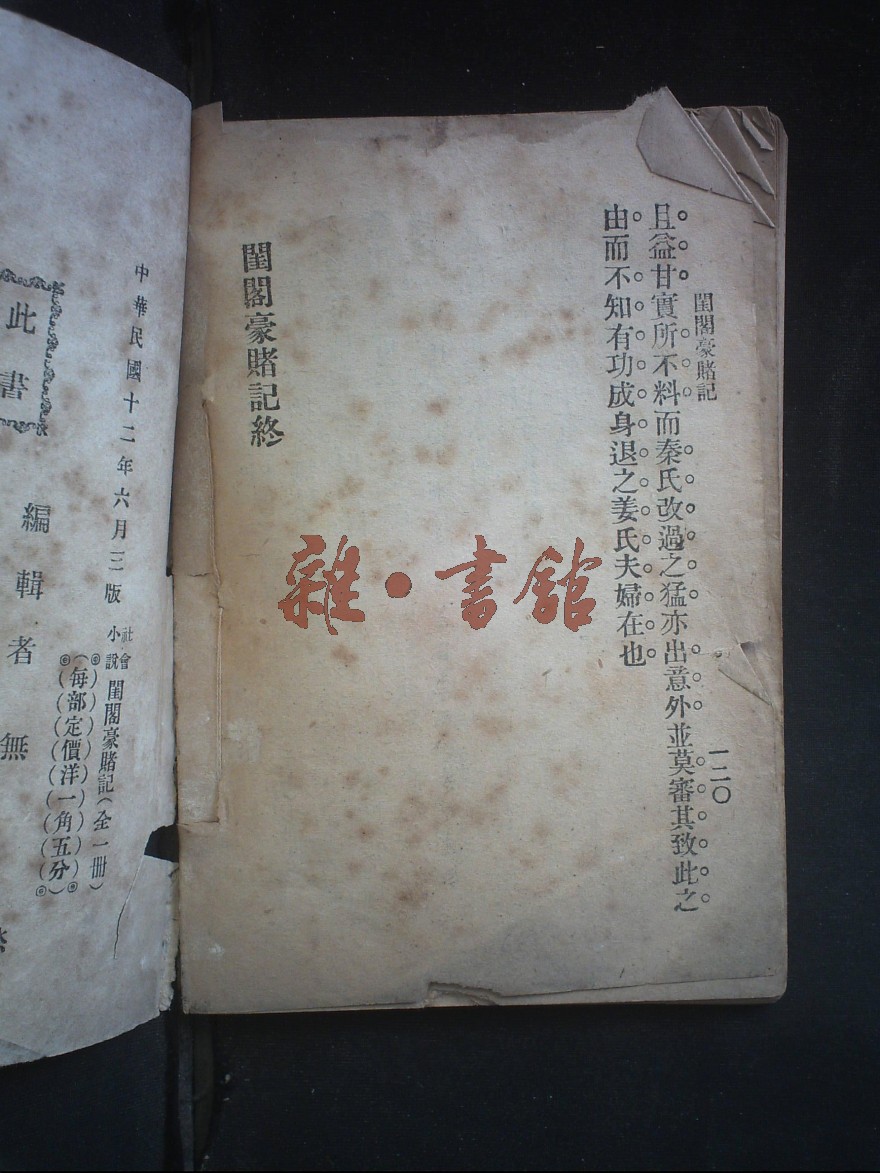 閨閣豪賭記
一二〇
且益甘實所不料而秦氏改過之猛亦出意外並莫審其致此之
由而不知有功成身退之姜氏夫婦在也
閨閣豪賭記終
中華民國十二年六月三版
社會小說 閨閣豪賭記(全一冊)
(每部定價洋一角五分)
編輯者 無
此書
雜·書館